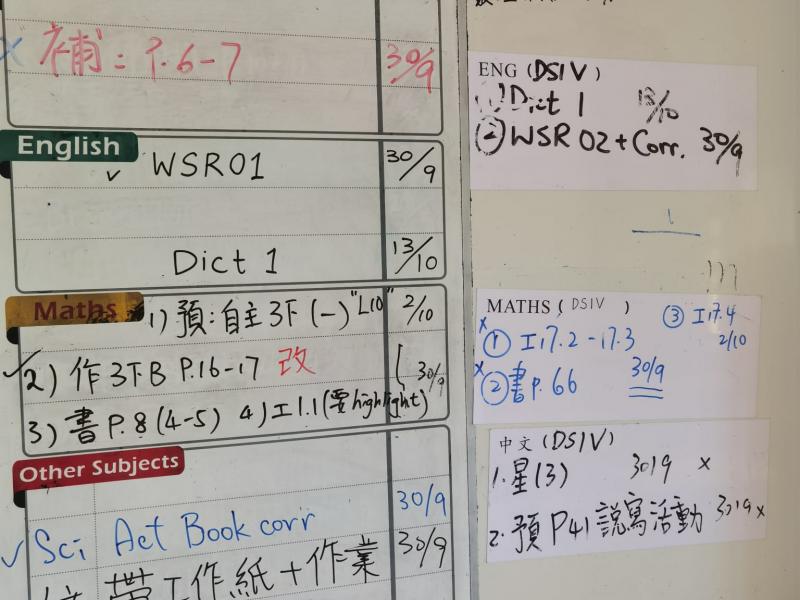 補：P.6-7 30/9
English
WSR01 30/9
Dict 1 13/10
Maths
1) 預：自主3下(一)"L10" 2/10
2) 作3下B P.16-17 改 30/9
3) 書P.8(4-5) 4)工1.1(要highlight)
Other Subjects
Sci Act Book corr 30/9
帶工作紙+作業 30/9
ENG (DSIV)
① Dict 1 13/10
② WSR 02+Corr. 30/9
MATHS (DSIV)
① 工17.2-17.3
② 書P.66 30/9
③ 工17.4 2/10
中文 (DSIV)
1. 星(3) 30/9 x
2. 預P41說寫活動 30/9 x